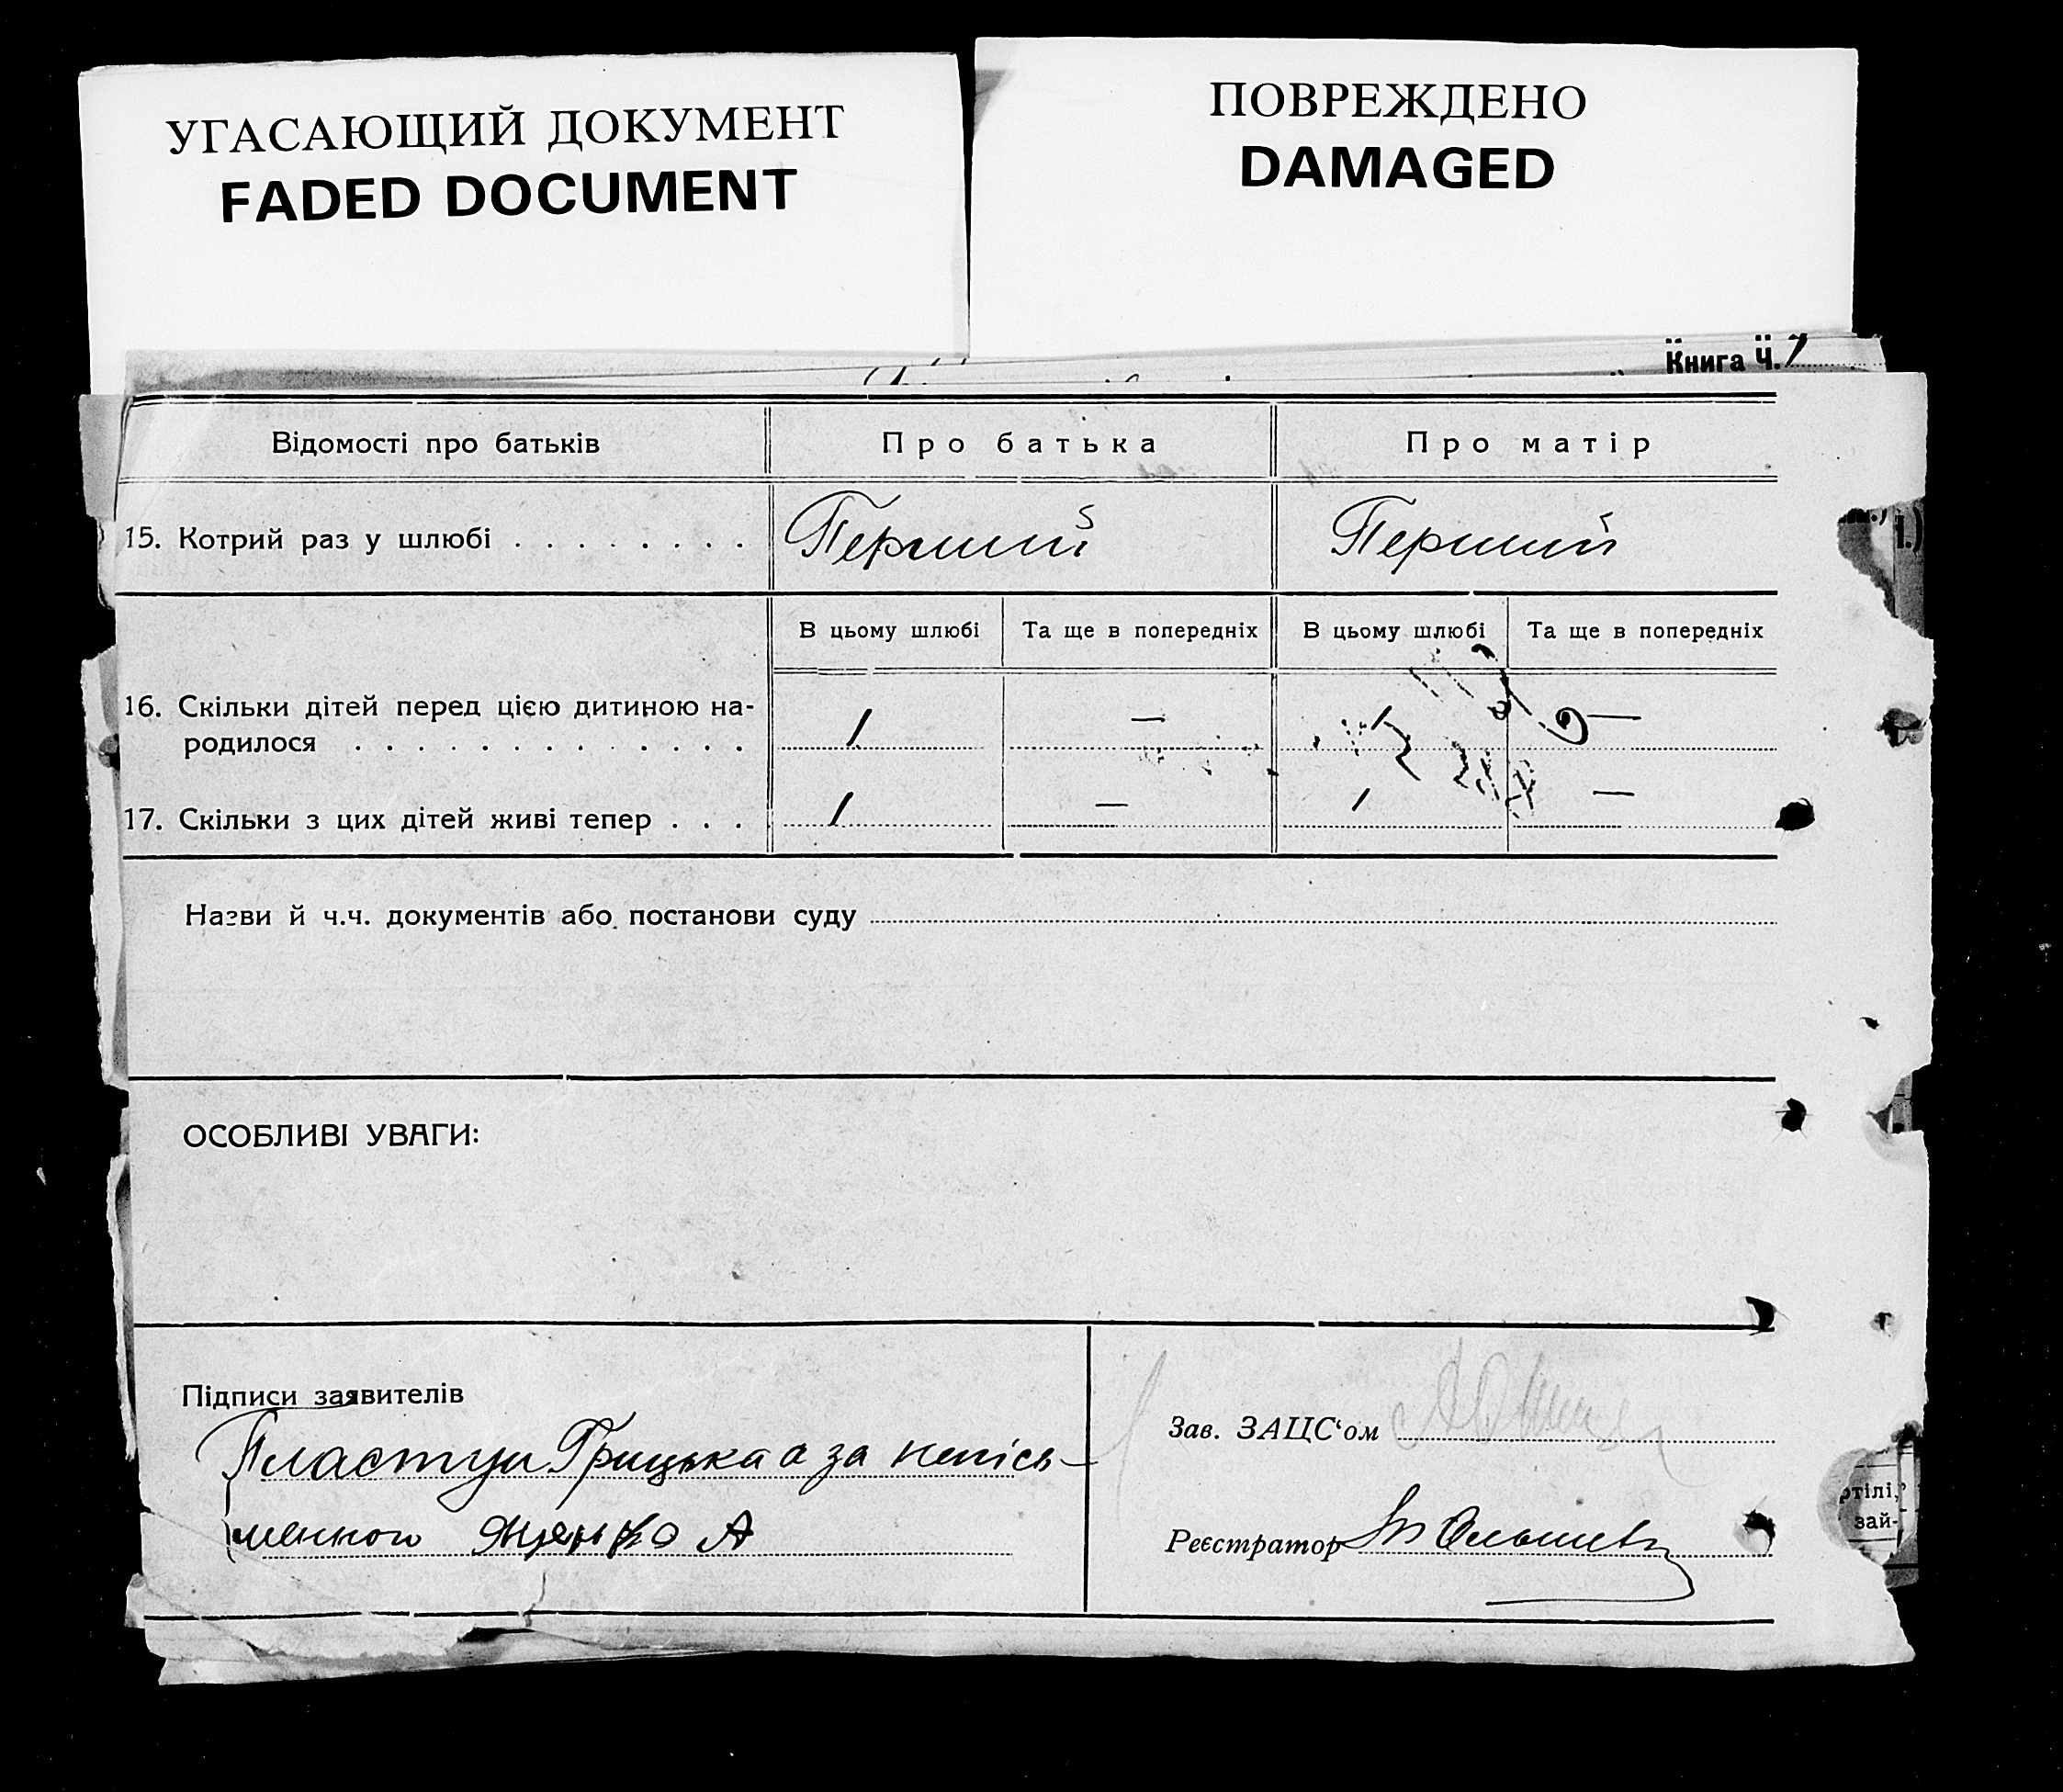 УГАСАЮЩИЙ ДОКУМЕНТ
FADED DOCUMENT
ПОВРЕЖДЕНО
DAMAGED
Книга Ч. 7
Відомості про батьків
Про батька
Про матір
15. Котрий раз у шлюбі . . . . . . . .
Перший
Перший
В цьому шлюбі
Та ще в попередніх
В цьому шлюбі
Та ще в попередніх
16. Скільки дітей перед цією дитиною на-
родилося . . . . . . . . . . . . .
1
—
1
—
17. Скільки з цих дітей живі тепер . . .
1
—
1
—
Назви й ч.ч. документів або постанови суду
ОСОБЛИВІ УВАГИ:
Підписи заявителів
Пластун Грицька а за непісь-
менного Яценко А
Зав. ЗАЦС‘ом
Реєстратор
ртілі,
зай-